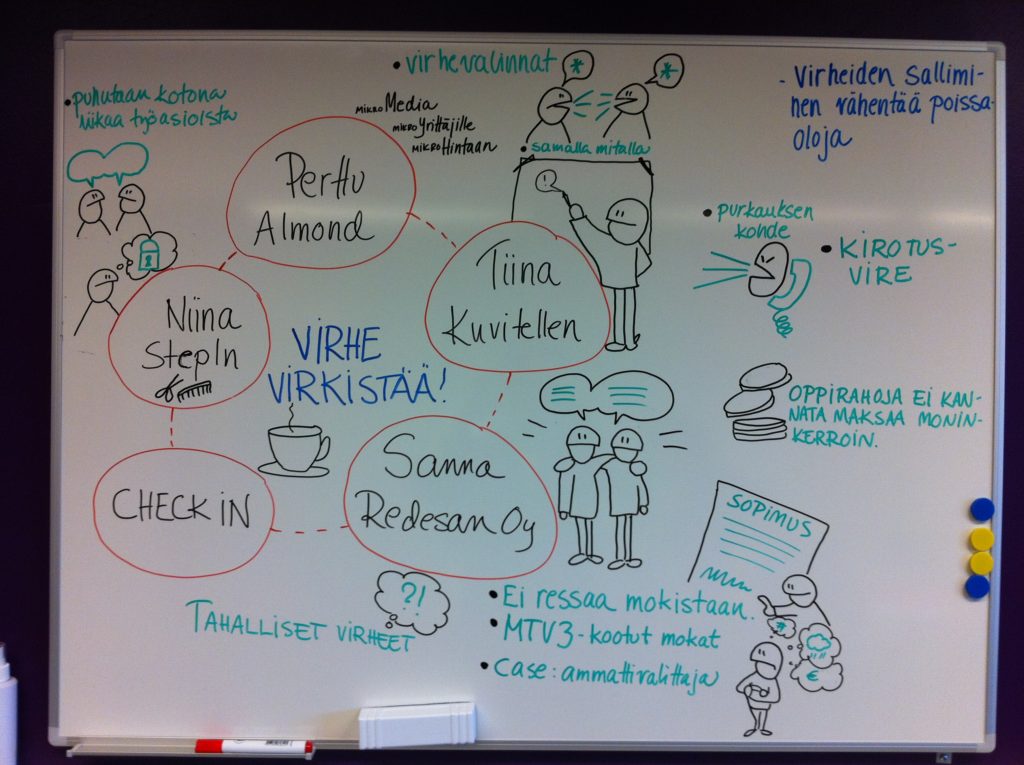 • puhutaan kotona
liikaa työasioista
• virhevalinnat
*
*
• samalla mitalla
MIKRO Media
MIKRO Yrittäjille
MIKRO Hintaan
- Virheiden sallimi-
nen vähentää poissa-
oloja
Perttu
Almond
Tiina
Kuvitellen
Niina
StepIn
VIRHE
VIRKISTÄÄ!
• purkauksen
kohde
• KIROTUS-
VIRE
OPPIRAHOJA EI KAN-
NATA MAKSAA MONIN-
KERROIN.
CHECK IN
Sanna
Redesan Oy
SOPIMUS
?!
TAHALLISET VIRHEET
• Ei ressaa mokistaan.
• MTV3 - kootut mokat
• case: ammattivalittaja
€